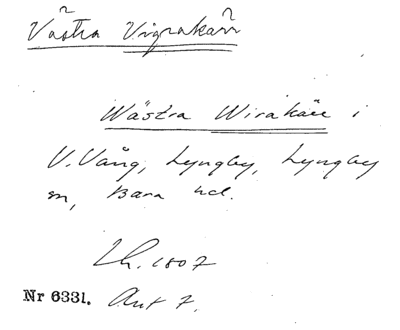 Västra Vigrakärr
Wästra Wirakärr i
V. Vång, Lyngby, Lyngby
sn, Bara hd.
Lh. 1807
Nr 6331. Akt 7.